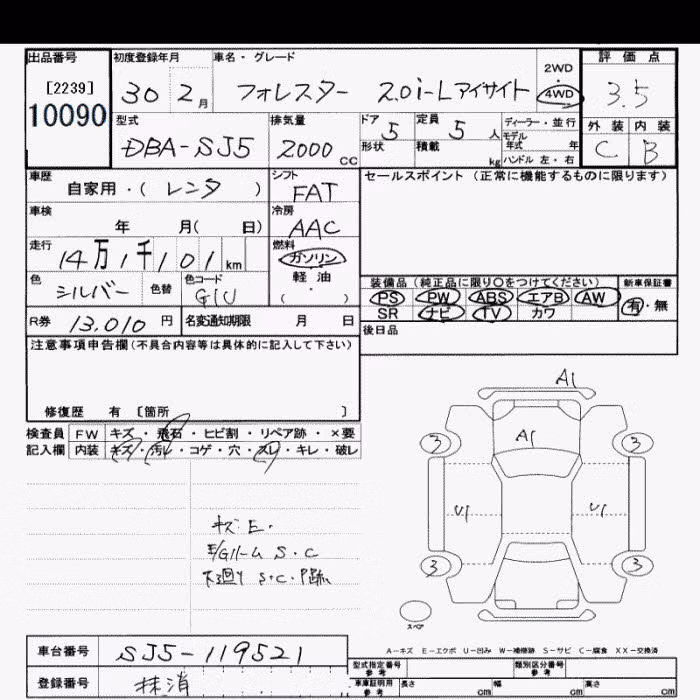 出品番号 初度登録年月 車名・グレード 評価点
[2239] 30 2月 フォレスター 2.0i-Lアイサイト 2WD・4WD 3.5
10090
型式 排気量 ドア 定員 ディーラー・並行 外装 内装
DBA-SJ5 2000cc 5 5人 モデル年式 年 C B
形状 積載 kg ハンドル 左・右
車歴 シフト セールスポイント(正常に機能するものに限ります)
自家用・(レンタ) FAT
車検 冷房
年 月( 日) AAC
走行 燃料
14万1千101km ガソリン
色 色替 色コード 軽油
シルバー G1U ( ・ )
装備品(純正品に限り○をつけてください) 新車保証書
PS PW ABS エアB AW 有・無
SR ナビ TV カワ
R券 13,010円 名変通知期限 月 日 後日品
注意事項申告欄(不具合内容等は具体的に記入して下さい)
修復歴 有 [箇所 ]
検査員 FW キズ・飛石・ヒビ割・リペア跡・×要
記入欄 内装 キズ・汚レ・コゲ・穴・スレ・キレ・破レ
A1
A1
3 3
U1 U1
3 3
キズ・E・
E/Gルーム S・C
下廻り S・C・
スペア
A-キズ E-エクボ U-凹み W-補修跡 S-サビ C-腐食 XX-交換済
車台番号 SJ5-119521
型式指定番号 参考 類別区分番号 参考
登録番号 抹消
車庫証明用 参考 長さ cm 幅 cm 高さ cm